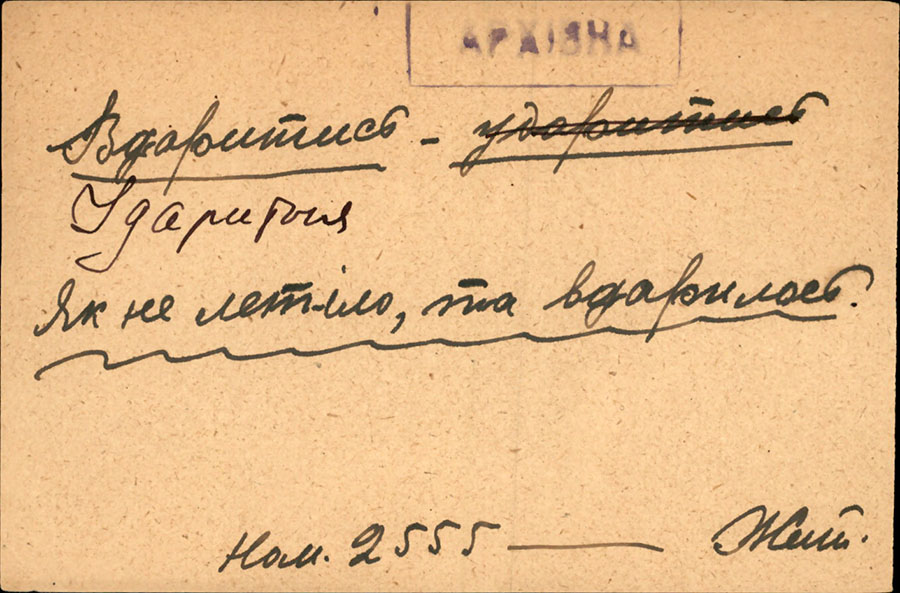 АРХІВНА
Вдаритись - ударитись
Ударитися
Як не летіло, та вдарилось.
Ном. 2555 — Жит.